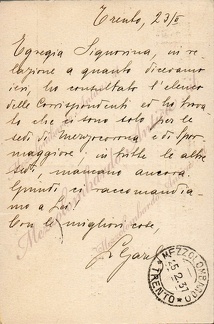 Trento, 23/II
Egregia Signorina, in re-
lazione a quanto dicevamo
ieri, ho consultato l'elenco
delle Corrispondenti ed ho trova-
to che ci sono solo per le
sedi di Mezzocorona e di Spor-
maggiore, in tutte le altre
sedi, mancano ancora.
Quindi ci raccomandia-
mo a Lei.
Con le migliori cose,
MEZZOLOMBARDO
TRENTO